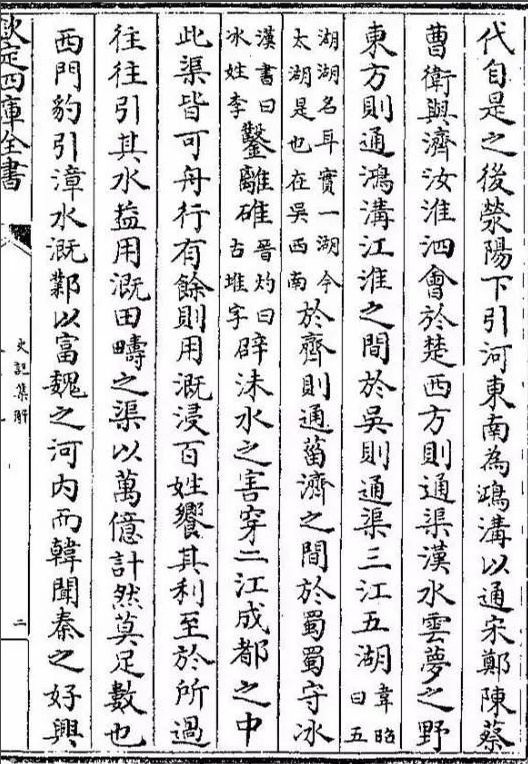 代自是之後滎陽下引河東南為鴻溝以通宋鄭陳蔡
曹衛與濟汝淮泗會於楚西方則通渠漢水雲夢之野
東方則通鴻溝江淮之間於吳則通渠三江五湖韋昭曰五
湖湖名耳實一湖今太湖是也在吳西南於齊則通菑濟之間於蜀蜀守冰
漢書曰冰姓李鑿離碓晉灼曰古堆字辟沫水之害穿二江成都之中
此渠皆可舟行有餘則用溉浸百姓饗其利至於所過
往往引其水益用溉田疇之渠以萬億計然莫足數也
西門豹引漳水溉鄴以富魏之河内而韓聞秦之好興
欽定四庫全書
史記集解
二